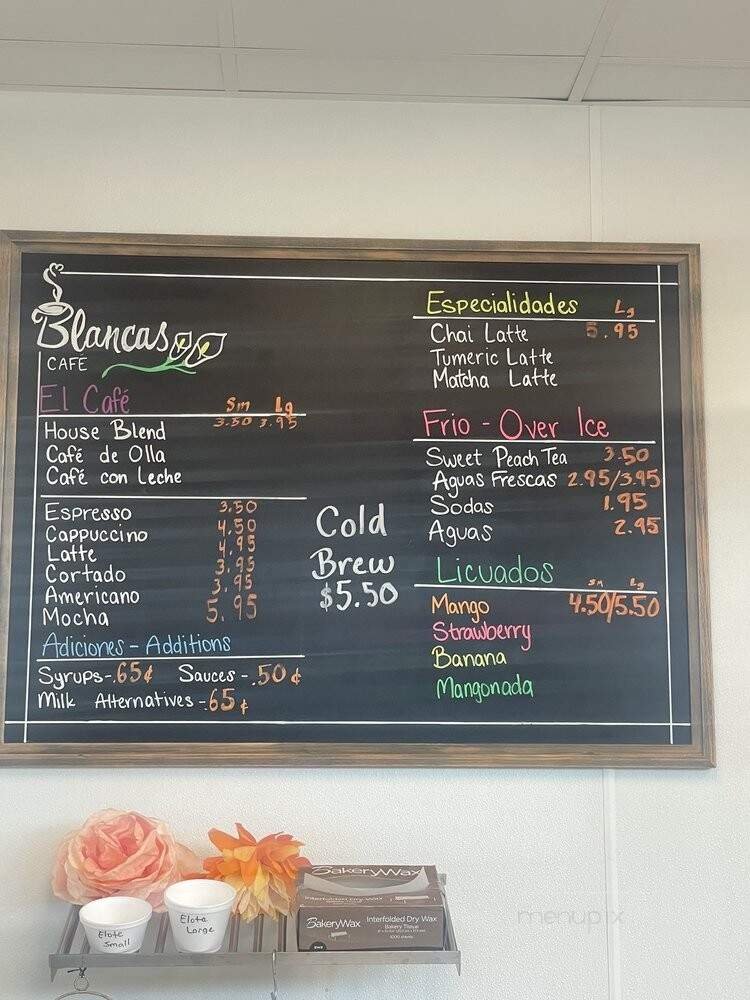 Blancas
CAFE
El Café Sm Lg
3.50 3.95
House Blend
Café de Olla
Café con Leche
Espresso 3.50
Cappuccino 4.50
Latte 4.95
Cortado 3.95
Americano 3.95
Mocha 5.95
Adiciones - Additions
Syrups - .65¢ Sauces - .50¢
Milk Alternatives - .65¢
Cold
Brew
$5.50
Especialidades Lg
Chai Latte 5.95
Tumeric Latte
Matcha Latte
Frio - Over Ice
Sweet Peach Tea 3.50
Aguas Frescas 2.95/3.95
Sodas 1.95
Aguas 2.95
Licuados
Sm Lg
Mango 4.50/5.50
Strawberry
Banana
Mangonada
Elote
Small
Elote
Large
BakeryWax
Interfolded Dry Wax
BakeryWax
Interfolded Dry Wax
Bakery Tissue
menupix